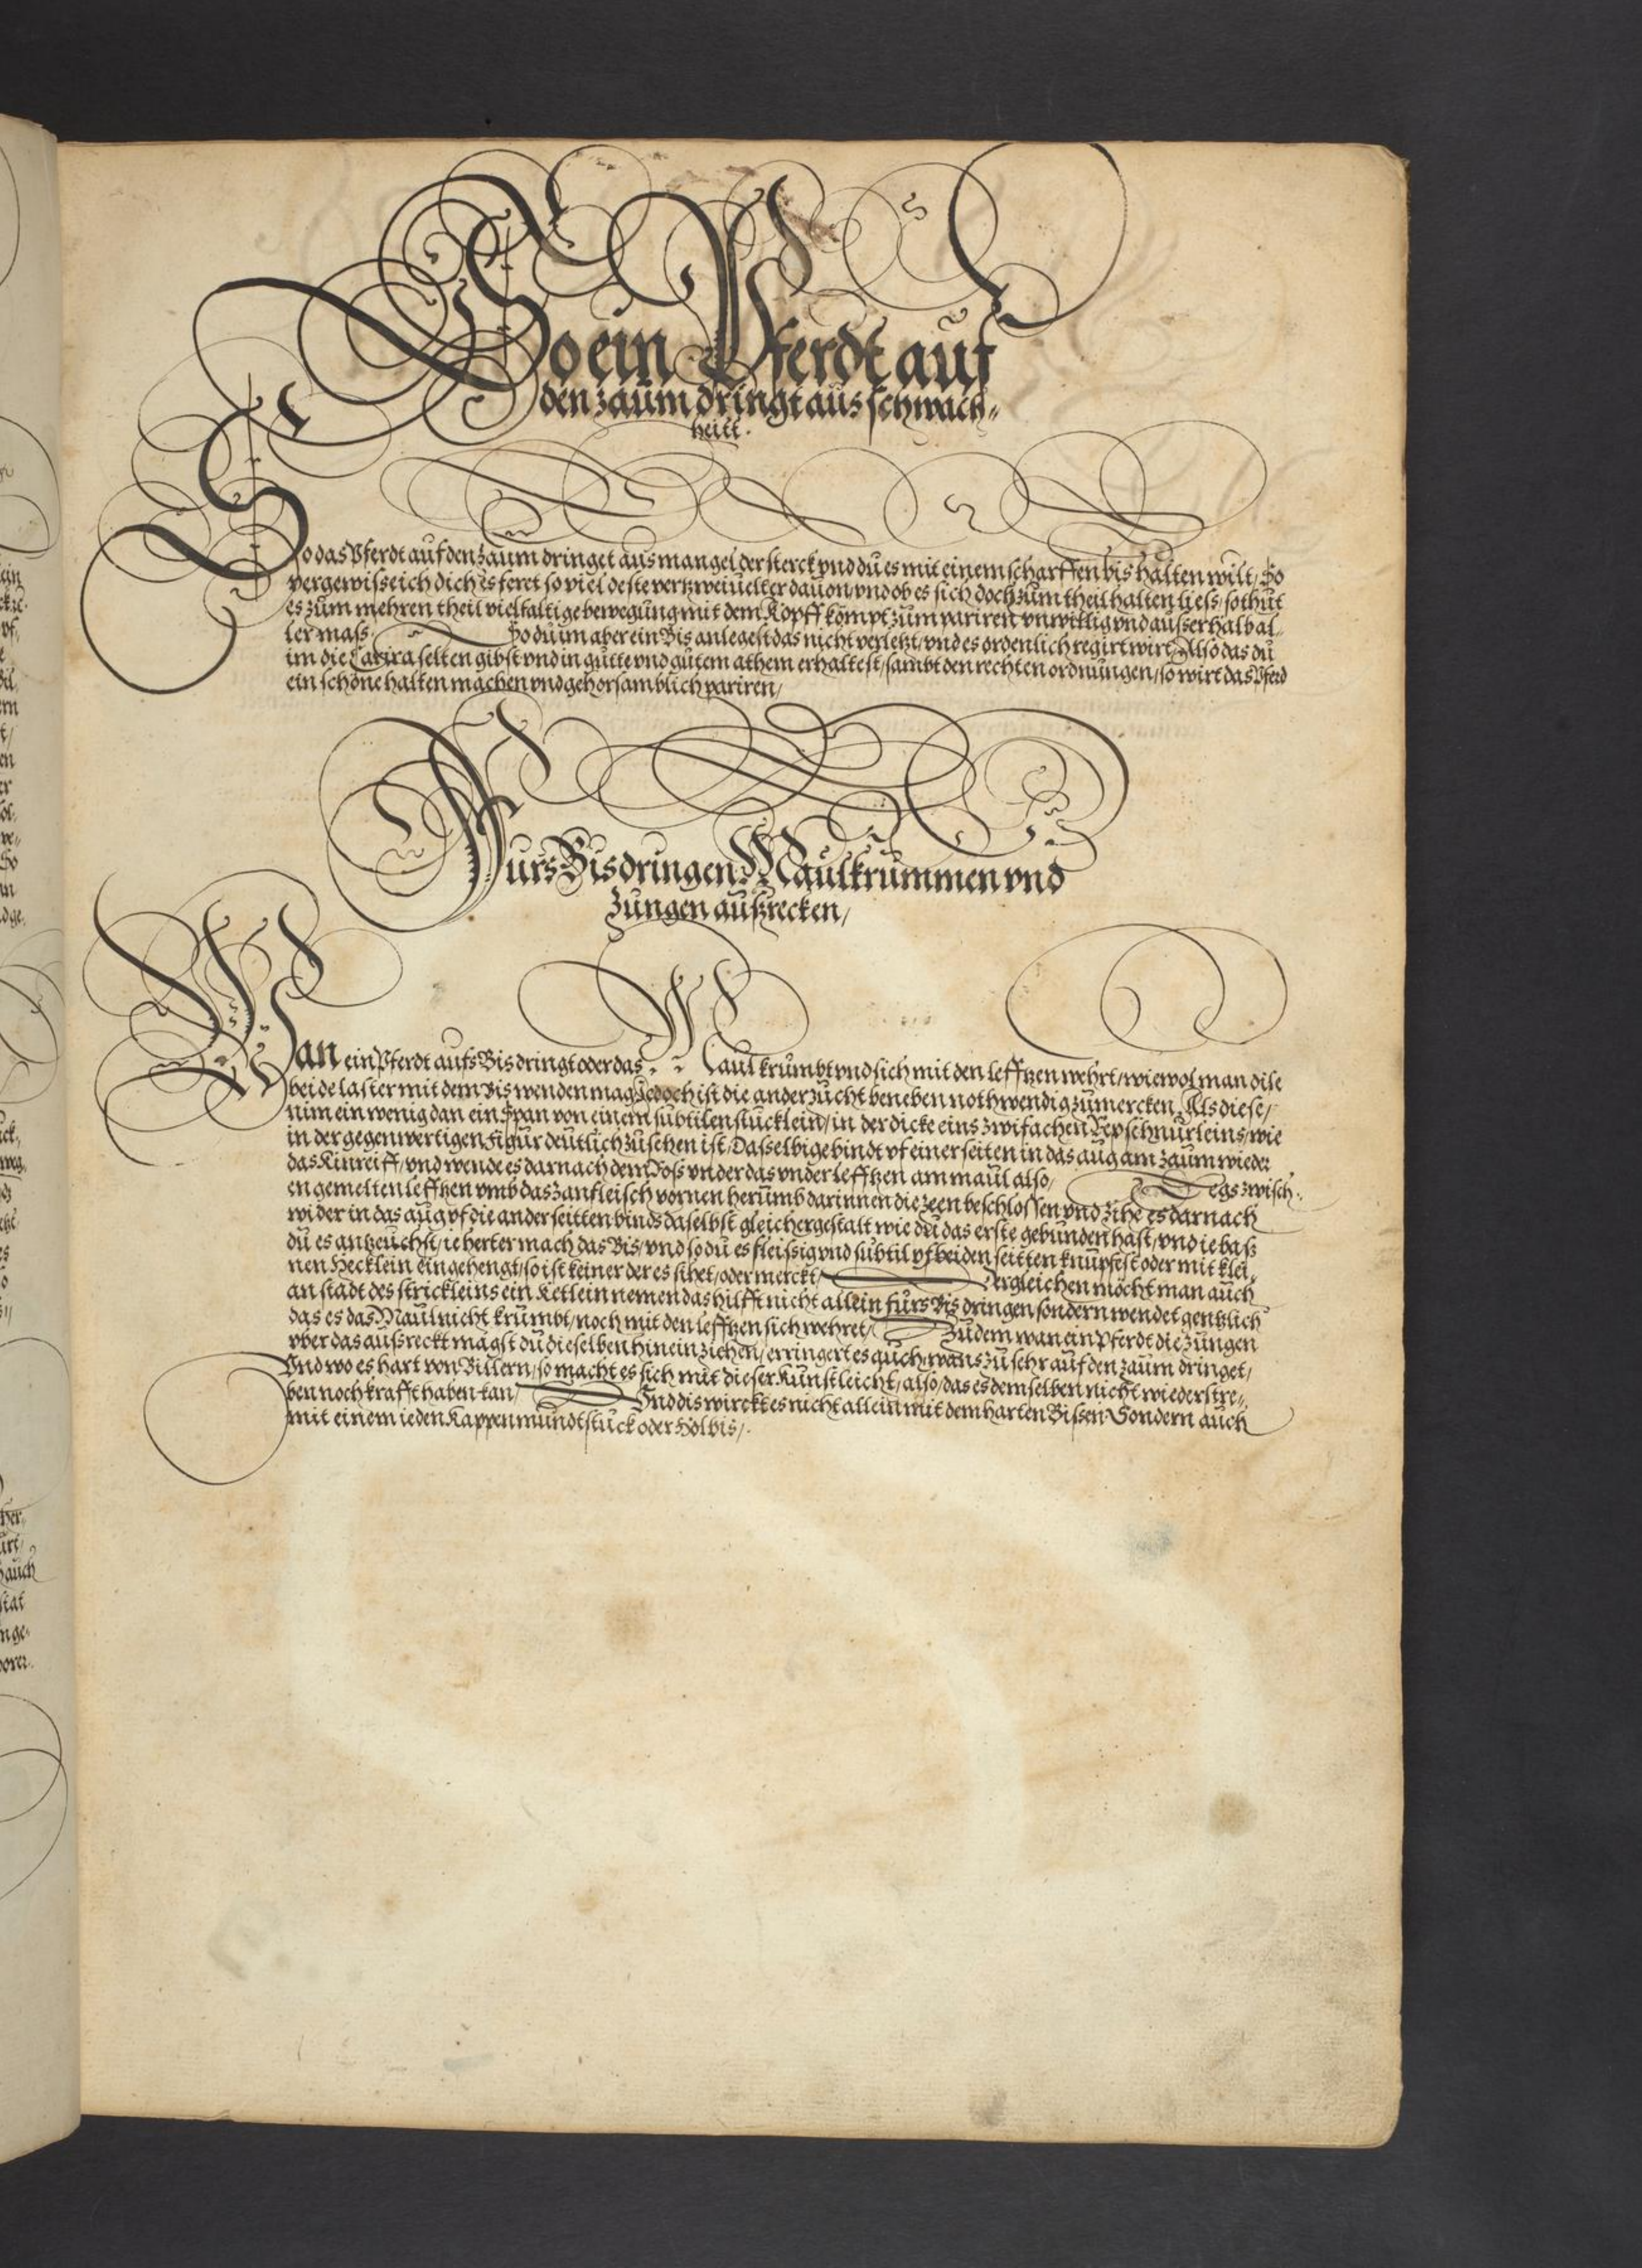 So ein Pferdt auf
den zaum dringt aus schwach„
heitt.
So das Pferdt auf den zaum dringet aus mangel der sterck vnd du es mit einem scharffen bis halten wilt, So
vergewisse ich dich es feret so viel deste vertzweiuelter dauon, vnd ob es sich doch zum theil halten liess, so thut
es zum mehren theil vielfaltige bewegung mit dem Kopff, kompt zum pariren vnwillig vnd ausserhalb al„
ler mass, So du im aber ein Bis anlegest das nicht verletzt, vnd es ordenlich regirt wirt, Also das du
im die Carira selten gibst vnd in gutte vnd gutem athem erhaltest, sambt den rechten ordnungen, so wirt das Pferd
ein schöne halten machen vnd gehorsamblich pariren,
Furs Bis dringen Maulkrummen vnd
Zungen außrecken,
Wan ein Pferdt aufs Bis dringt oder das Maul krumbt vnd sich mit den leffzen wehrt, wiewol man dise
beide laster mit dem Bis wenden mag, Jedoch ist die ander zucht beneben nothwendig zumercken, Als diese,
nim ein wenig dan ein Span von einem subtilen stucklein, in der dicke eins zwifachen Rep schnurleins, wie
in der gegenwertigen Figur deutlich zusehen ist, Dasselbige bindt vf einer seiten in das aug am zaum wieder
das Kinreiff, vnd wende es darnach dem Ross vnder das vnder leffzen am maul also, Legs zwisch„
en gemelten leffzen vmb das zanfleisch vornen herumb darinnen die zeen beschlossen vnd zihe es darnach
wider in das aug vf die ander seitten binds daselbst gleichergestalt wie du das erste gebunden hast, vnd ie baß
du es antzeuchst, ie herter mach das Bis, vnd so du es fleissig vnd subtil vf beiden seitten knupfest oder mit klei„
nen Hecklein eingehengt, so ist keiner der es sihet, oder merckt, Dergleichen möcht man auch
an stadt des strickleins ein Ketlein nemen das hilfft nicht allein furs Bis dringen sondern wendet gentzlich
das es das Maul nicht krumbt, noch mit den leffzen sich wehret, Zudem wan ein Pferdt die zungen
vber das aussreckt magst du dieselben hinein ziehen, erringert es auch, wans zu sehr auf den zaum dringet,
Vnd wo es hart von Billern, so macht es sich mit dieser Kunst leicht, also, das es demselben nicht wiederstre„
ben noch krafft haben kan, Vnd dis wirckt es nicht allein mit dem harten Bissen Sondern auch
mit einem ieden Kappenmundtstuck oder Holbis,